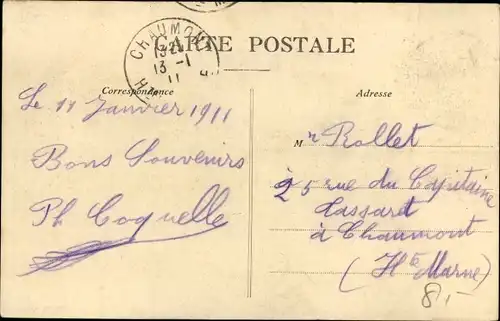 CARTE POSTALE
CHAUMONT
13 -1
11
Correspondance
Adresse
Le 11 Janvier 1911
Bons Souvenirs
Ph Coquelle
Mr Rollet
25 rue du Capitaine
Tassard
à Chaumont
(Hte Marne)
8.-